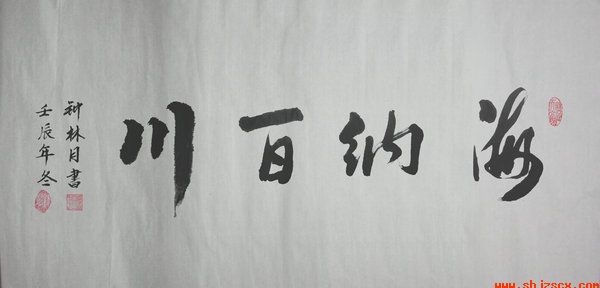 海納百川
林月書
壬辰年冬
www.shjzscx.com